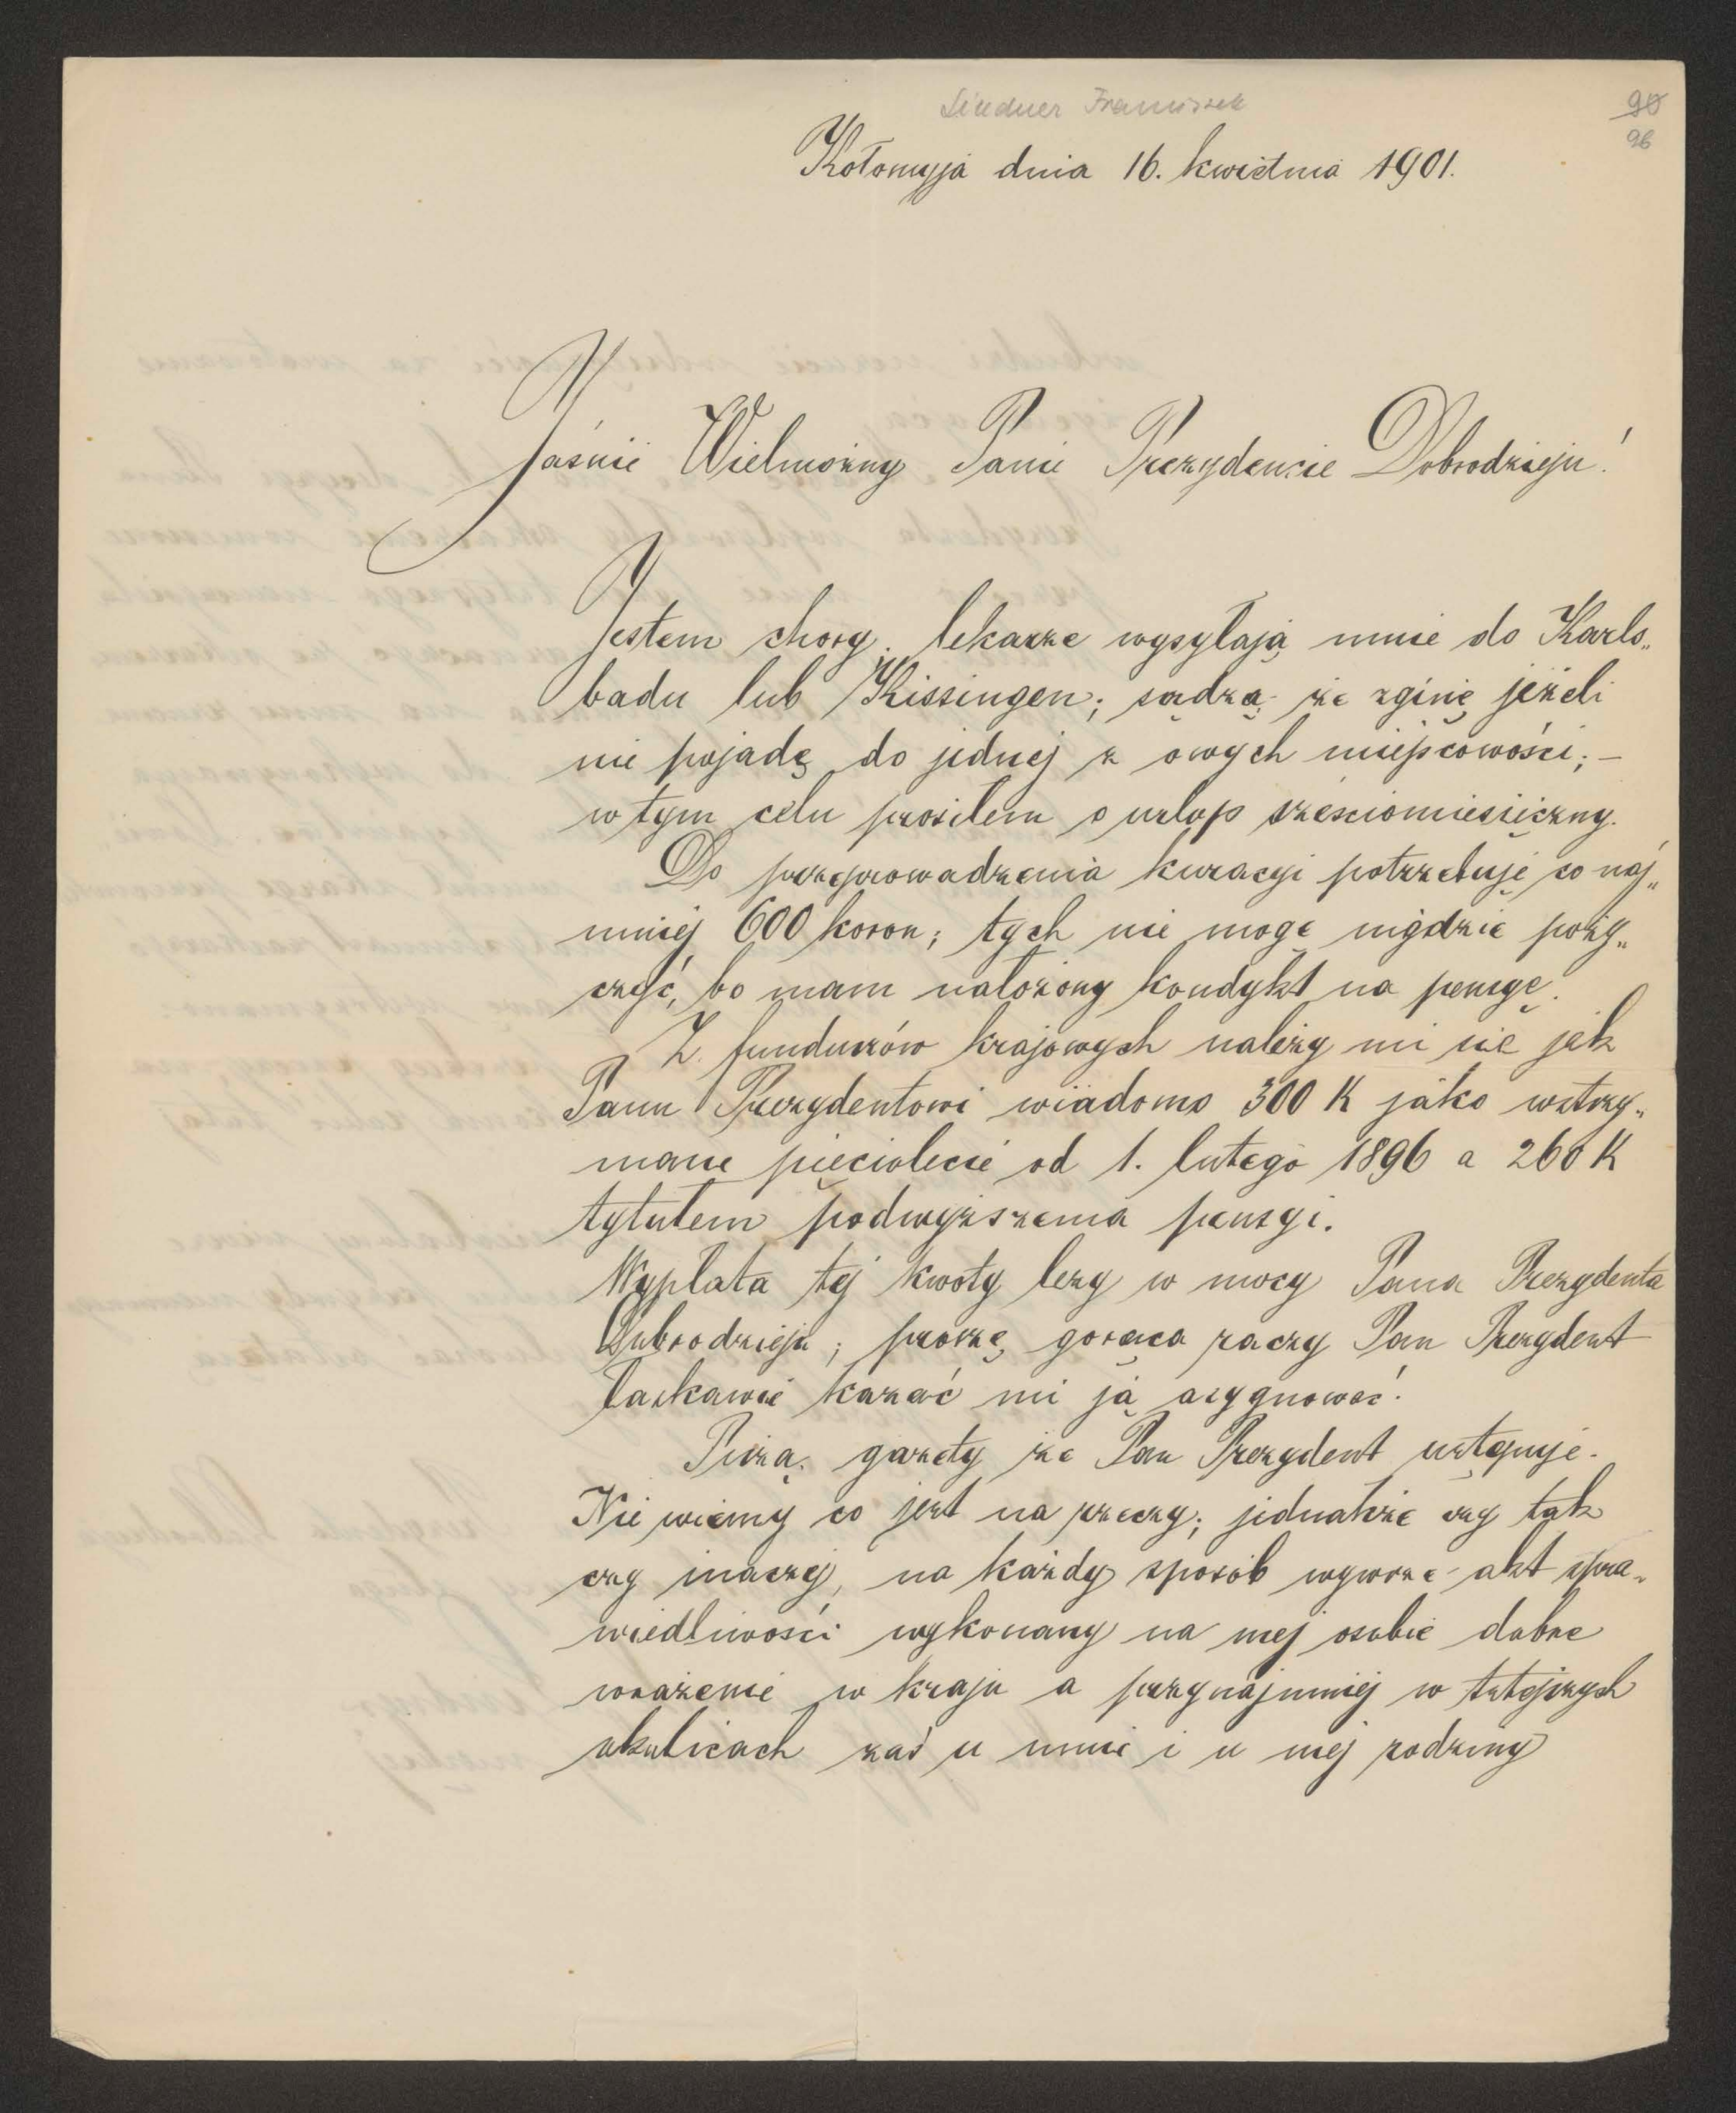 Lindner Franciszek
90
96
Kołomyja dnia 16. kwietnia 1901.
Jaśnie Wielmożny Panie Prezydencie Dobrodzieju!
Jestem chory. lekarze wysyłają mnie do Karls„
badu lub Kissingen; sądzą że zginę jeżeli
nie pojadę do jednej z owych miejscowości; –
w tym celu prosiłem o urlop sześciomiesięczny.
Do przeprowadzenia kuracyi potrzebuję co naj„
mniej 600 koron; tych nie mogę nigdzie poży„
czyć, bo mam nałożony kondykt na pensyę.
Z funduszów krajowych należy mi się jak
Panu Prezydentowi wiadomo 300 K jako wstrzy„
mane pięciolecie od 1. lutego 1896 a 260 K
tytułem podwyższenia pensyi.
Wypłata tej kwoty leży w mocy Pana Prezydenta
Dobrodzieja; proszę gorąco raczy Pan Prezydent
łaskawie kazać mi ją asygnować.
Piszą gazety że Pan Prezydent ustępuje.
Nie wiemy co jest na rzeczy; jednakże czy tak
czy inaczej, na każdy sposób wywrze akt spra„
wiedliwości wykonany na mej osobie dobre
wrażenie w kraju a przynajmniej w tutejszych
okolicach zaś u mnie i u mej rodziny